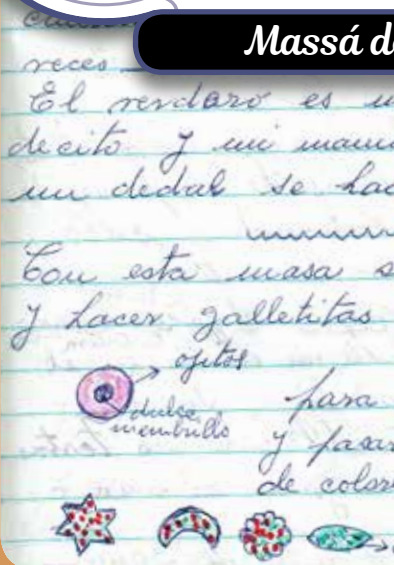 Massá d
veces
El verdaro es u
decito y mi mam
un dedal se hac
Con esta masa s
y hacer galletitas
ojitos
dulce
membrillo
para
y pasar
de color